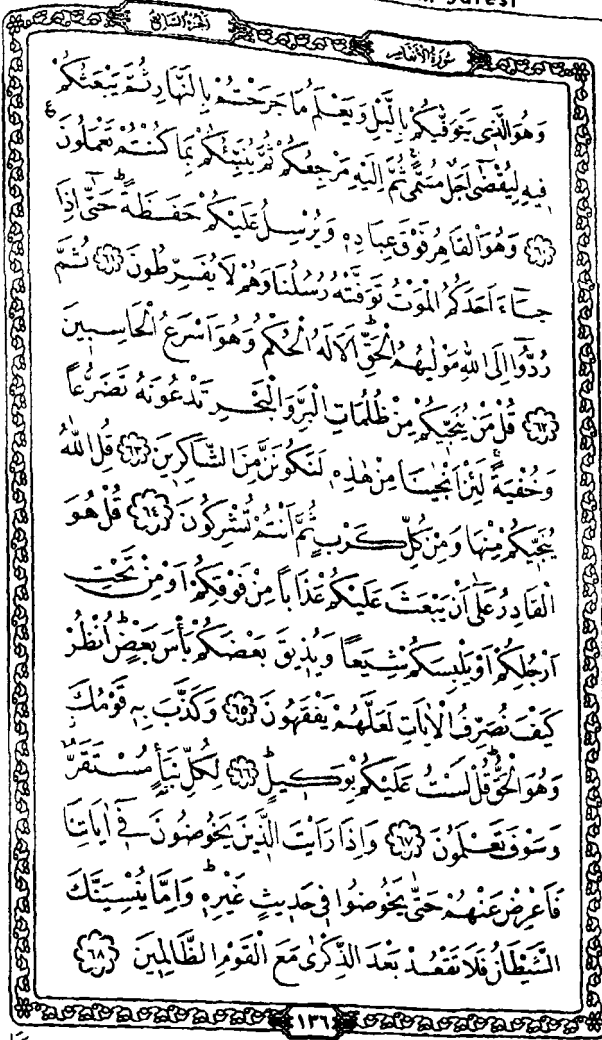 سُورَةُ الْأَنْعَامِ
اَلْجُزْءُ السَّابِعُ
وَهُوَ الَّذ۪ي يَتَوَفّٰيكُمْ بِالَّيْلِ وَيَعْلَمُ مَا جَرَحْتُمْ بِالنَّهَارِ ثُمَّ يَبْعَثُكُمْ
ف۪يهِ لِيُقْضٰٓى اَجَلٌ مُسَمًّىۚ ثُمَّ اِلَيْهِ مَرْجِعُكُمْ ثُمَّ يُنَبِّئُكُمْ بِمَا كُنْتُمْ تَعْمَلُونَ ع
﴿٦٠﴾ وَهُوَ الْقَاهِرُ فَوْقَ عِبَادِه۪ وَيُرْسِلُ عَلَيْكُمْ حَفَظَةًۜ حَتّٰٓى اِذَا
جَٓاءَ اَحَدَكُمُ الْمَوْتُ تَوَفَّتْهُ رُسُلُنَا وَهُمْ لَا يُفَرِّطُونَ ﴿٦١﴾ ثُمَّ
رُدُّٓوا اِلَى اللّٰهِ مَوْلٰيهُمُ الْحَقِّۜ اَلَا لَهُ الْحُكْمُ وَهُوَ اَسْرَعُ الْحَاسِب۪ينَ
﴿٦٢﴾ قُلْ مَنْ يُنَجّ۪يكُمْ مِنْ ظُلُمَاتِ الْبَرِّ وَالْبَحْرِ تَدْعُونَهُ تَضَرُّعًا
وَخُفْيَةًۚ لَئِنْ اَنْجٰينَا مِنْ هٰذِه۪ لَنَكُونَنَّ مِنَ الشَّاكِر۪ينَ ﴿٦٣﴾ قُلِ اللّٰهُ
يُنَجّ۪يكُمْ مِنْهَا وَمِنْ كُلِّ كَرْبٍ ثُمَّ اَنْتُمْ تُشْرِكُونَ ﴿٦٤﴾ قُلْ هُوَ
الْقَادِرُ عَلٰٓى اَنْ يَبْعَثَ عَلَيْكُمْ عَذَابًا مِنْ فَوْقِكُمْ اَوْ مِنْ تَحْتِ
اَرْجُلِكُمْ اَوْ يَلْبِسَكُمْ شِيَعًا وَيُذ۪يقَ بَعْضَكُمْ بَأْسَ بَعْضٍۜ اُنْظُرْ
كَيْفَ نُصَرِّفُ الْاٰيَاتِ لَعَلَّهُمْ يَفْقَهُونَ ﴿٦٥﴾ وَكَذَّبَ بِه۪ قَوْمُكَ
وَهُوَ الْحَقُّۜ قُلْ لَسْتُ عَلَيْكُمْ بِوَك۪يلٍۜ ﴿٦٦﴾ لِكُلِّ نَبَأٍ مُسْتَقَرٌّۘ
وَسَوْفَ تَعْلَمُونَ ﴿٦٧﴾ وَاِذَا رَاَيْتَ الَّذ۪ينَ يَخُوضُونَ ف۪ٓي اٰيَاتِنَا
فَاَعْرِضْ عَنْهُمْ حَتّٰى يَخُوضُوا ف۪ي حَد۪يثٍ غَيْرِه۪ۜ وَاِمَّا يُنْسِيَنَّكَ
الشَّيْطَانُ فَلَا تَقْعُدْ بَعْدَ الذِّكْرٰى مَعَ الْقَوْمِ الظَّالِم۪ينَ ﴿٦٨﴾
١٣٦